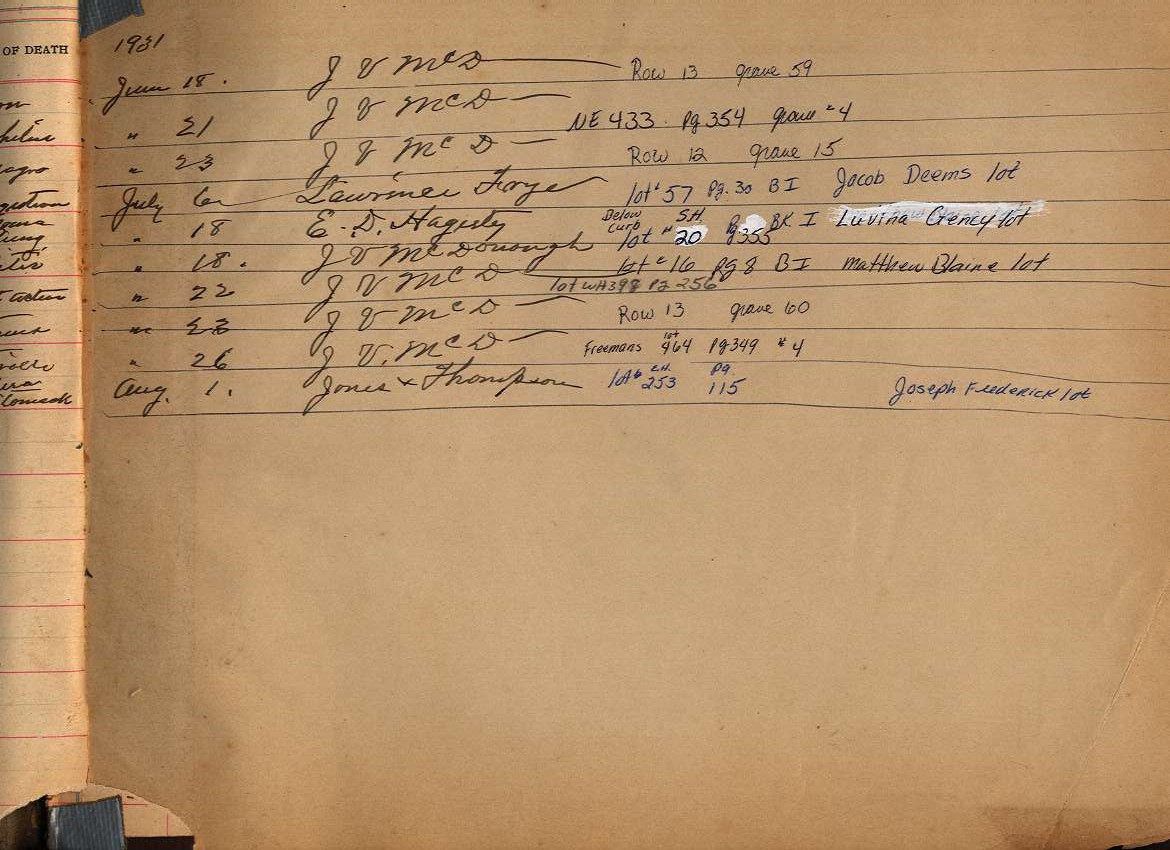 OF DEATH
1931
June 18. J V McD Row 13 grave 59
" 21 J V McD NE 433 Pg 354 grave #4
" 23 J V McD Row 12 grave 15
July 6 Lawrence Frye lot # 57 Pg. 30 B I Jacob Deems lot
" 18 E. D. Hagerty Below Curb lot # S.H. 20 Pg. 355 BK. I Luvina lot
" 18. J V McDonough lot # 16 pg 8 B I Matthew Blaine lot
" 22 J V McD lot WH398 Pg 256
" 23 J V McD Row 13 grave 60
" 26 J V. McD Freemans lot 464 Pg349 #4
Aug. 1. Jones & Thompson lot # S.H. 253 Pg. 115 Joseph Frederick lot